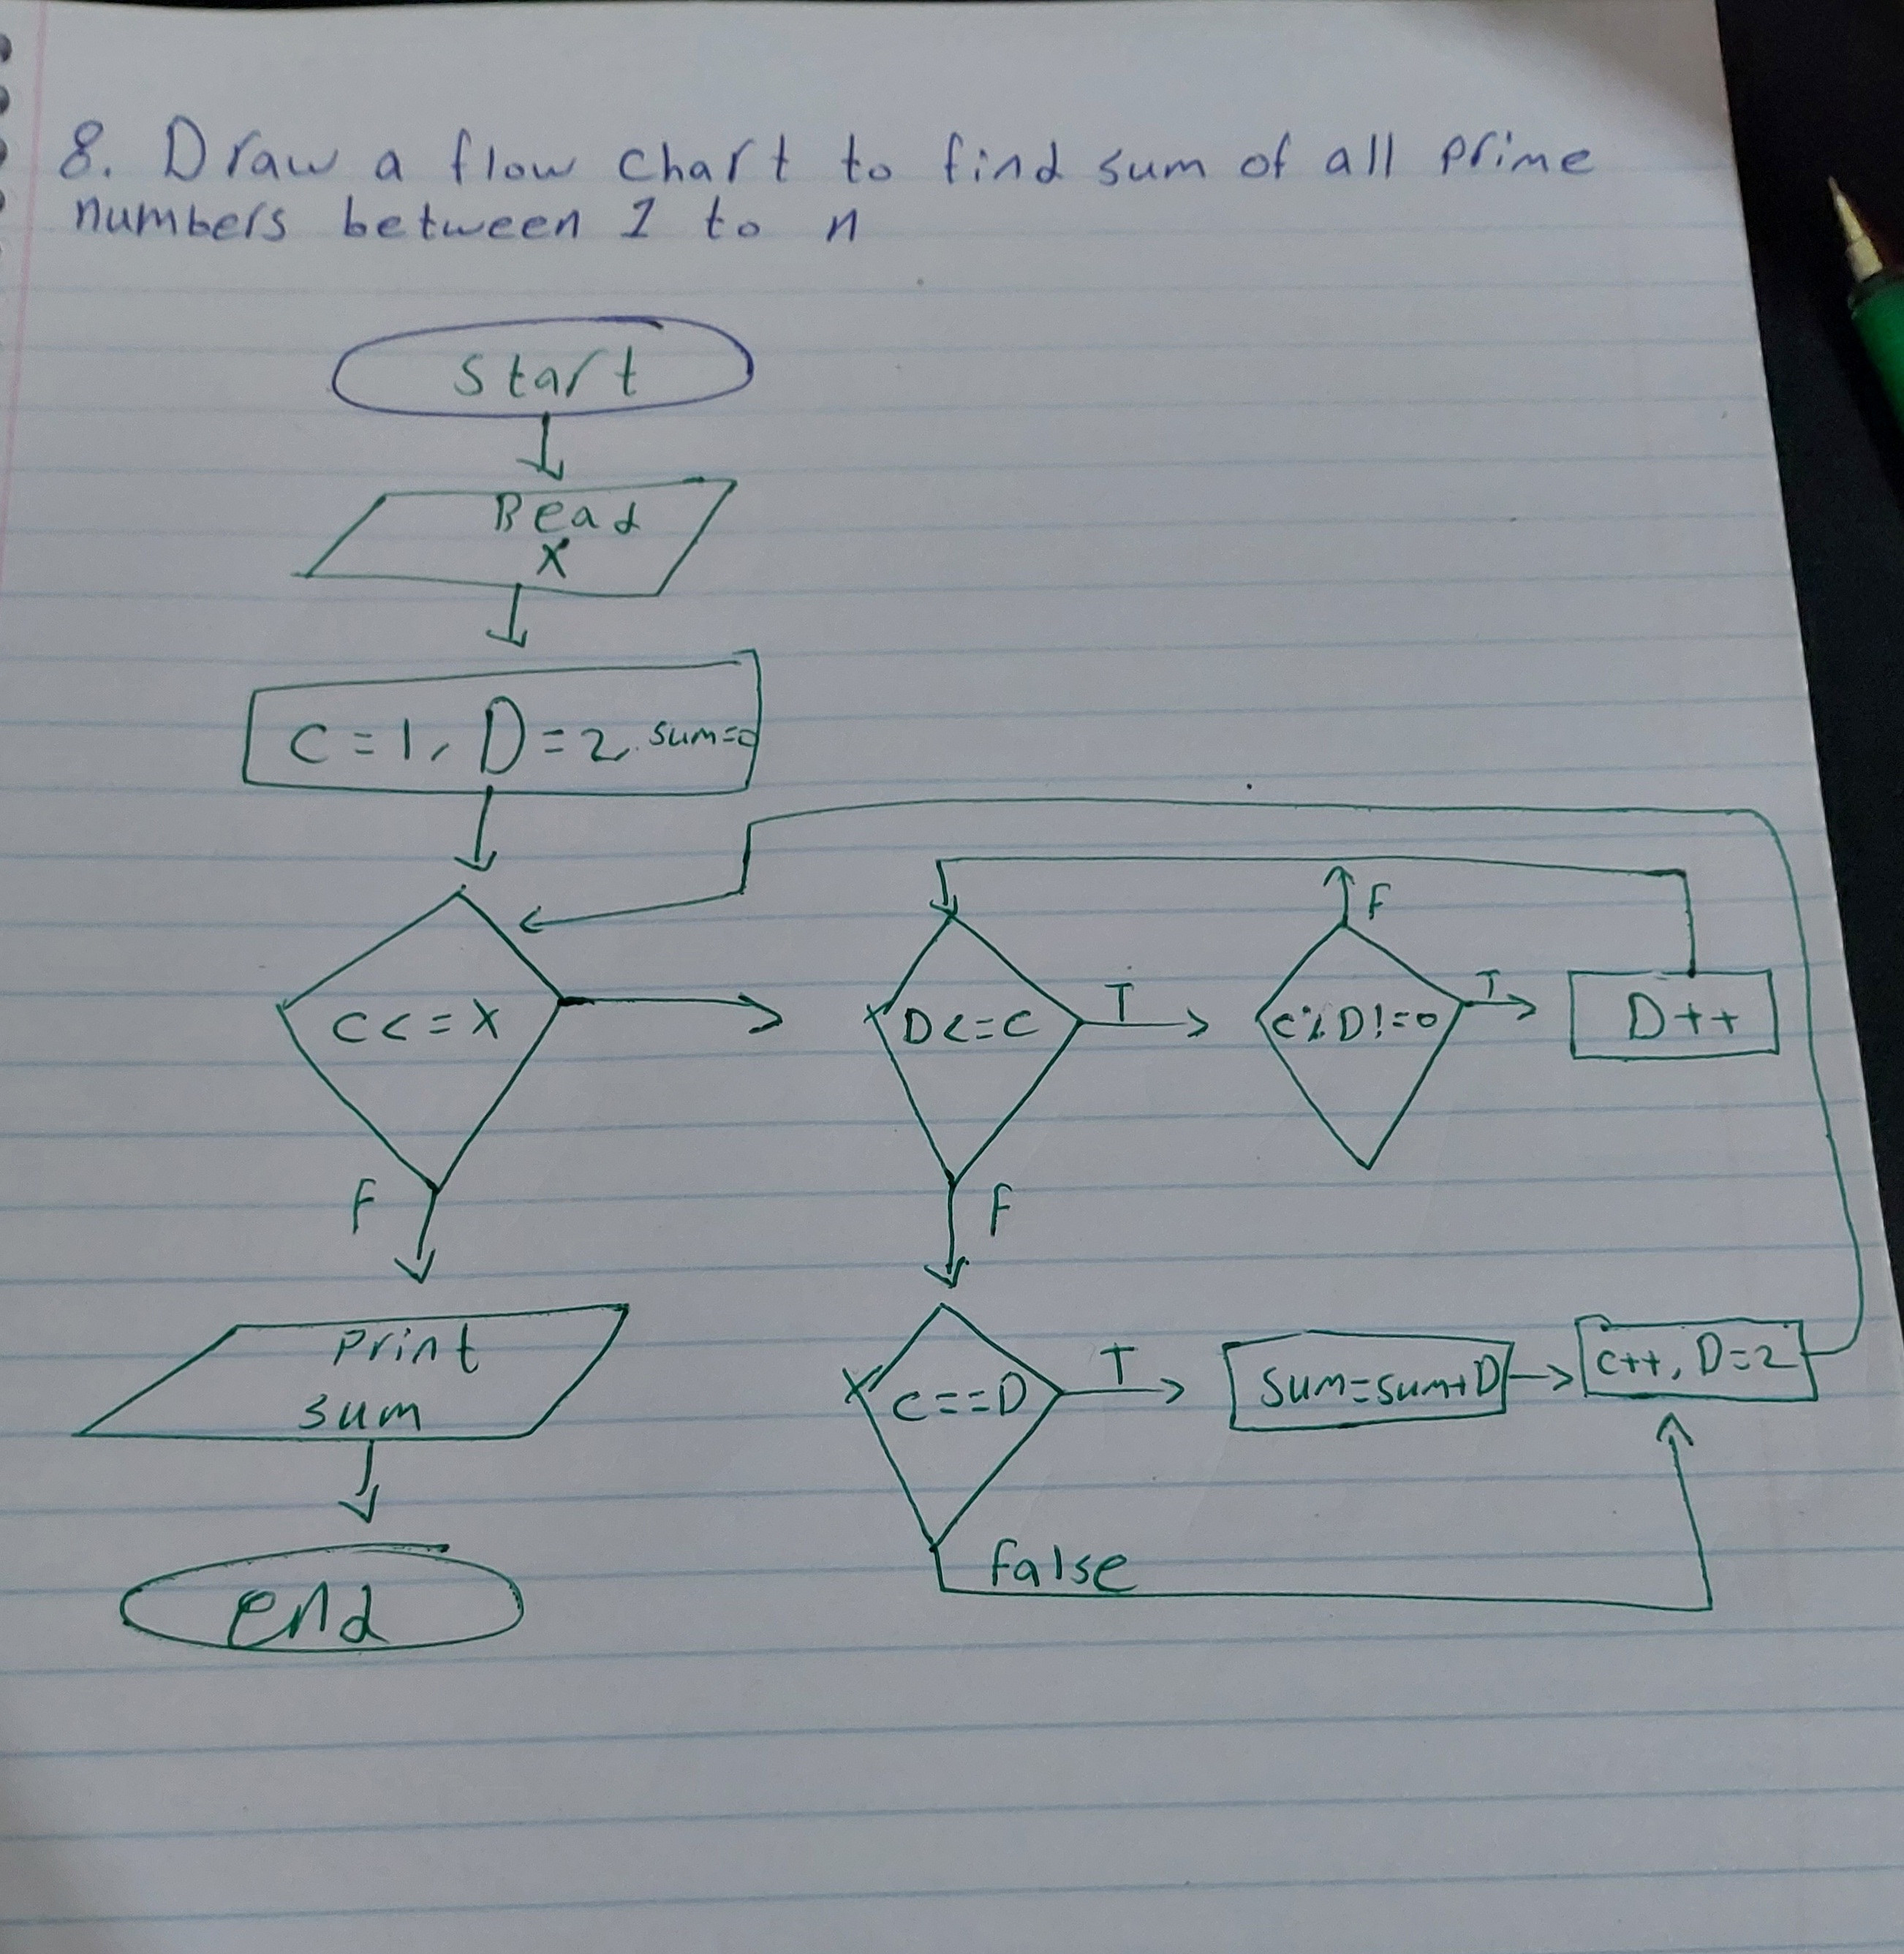 8. Draw a flow chart to find sum of all prime
numbers between 1 to n
Start
Read
X
C = 1, D = 2, sum=0
C < = X
F
Print
sum
end
D < = C
T
F
C % D != 0
F
T
D + +
C = = D
T
false
sum = sum + D
C++, D=2